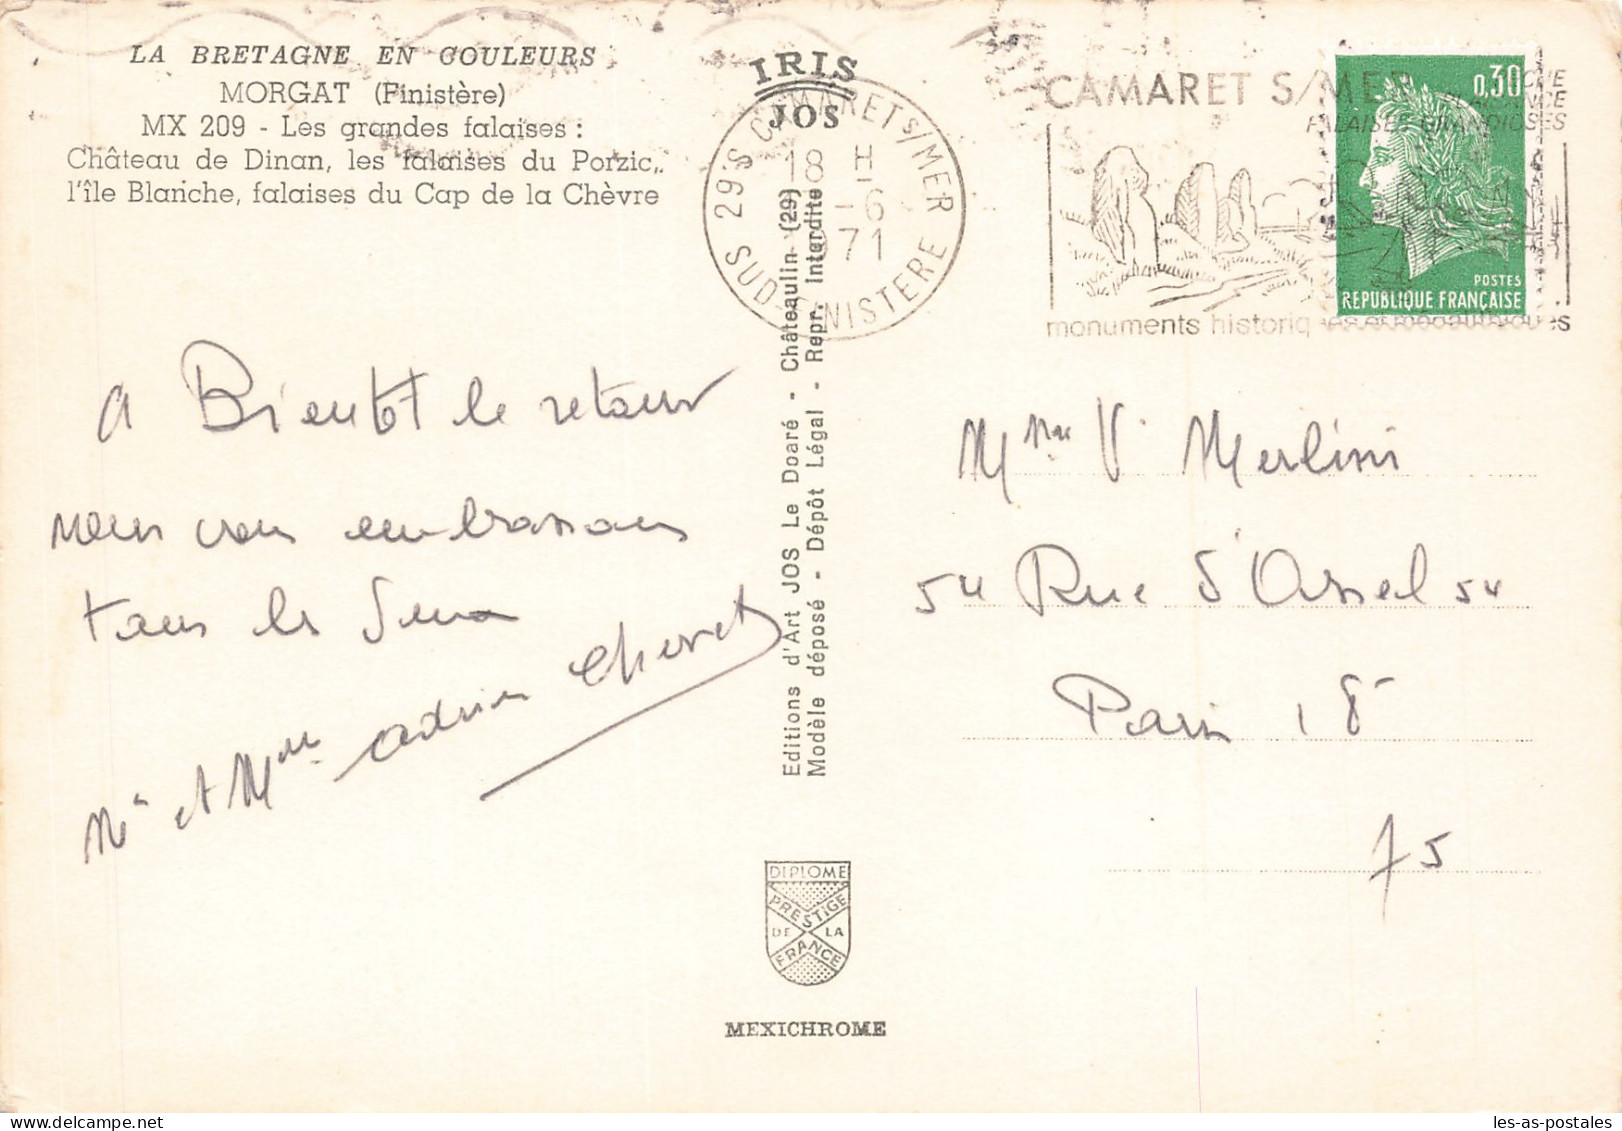 LA BRETAGNE EN COULEURS
MORGAT (Finistère)
MX 209 - Les grandes falaises :
Château de Dinan, les falaises du Porzic,
l'île Blanche, falaises du Cap de la Chèvre
A Bientot le retour
nous vous embrassons
tous les deux
Mr et Mme Adrien
IRIS
JOS
29 S CAMARET S/MER
18 H
-6
1971
SUD-FINISTERE
Editions d'Art JOS Le Doaré - Châteaulin (29)
Modèle déposé - Dépôt Légal - Repr. Interdite
DIPLOME
PRESTIGE
DE LA
FRANCE
MEXICHROME
CAMARET S/MER
FALAISES GRANDIOSES
monuments historiques et mégalithiques
0,30
POSTES
REPUBLIQUE FRANÇAISE
Mme V. Merlini
54 Rue d'Orsel 54
Paris 18e
75
les-as-postales